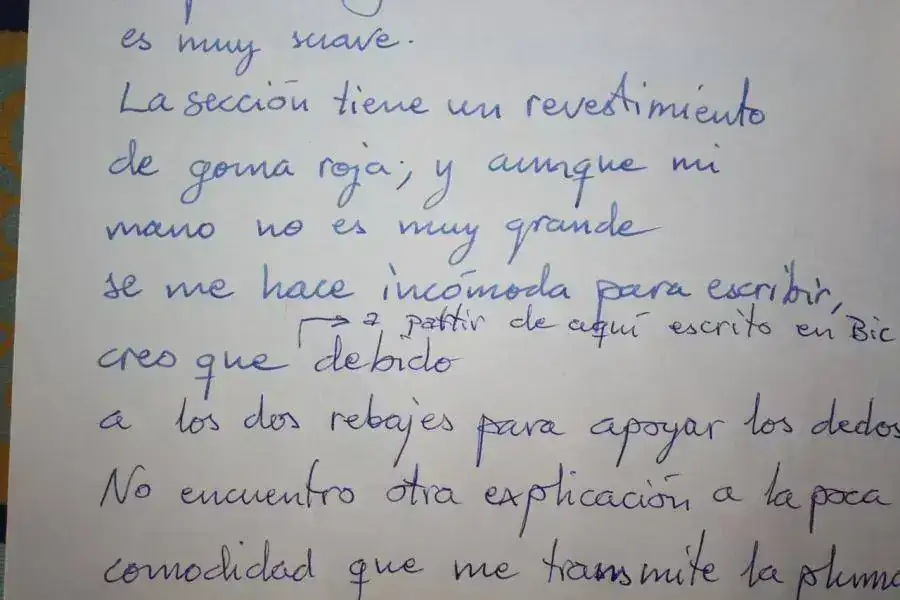 es muy suave.
La sección tiene un revestimiento
de goma roja; y aunque mi
mano no es muy grande
se me hace incómoda para escribir,
a partir de aquí escrito en Bic
creo que debido
a los dos rebajes para apoyar los dedos
No encuentro otra explicación a la poca
comodidad que me transmite la pluma